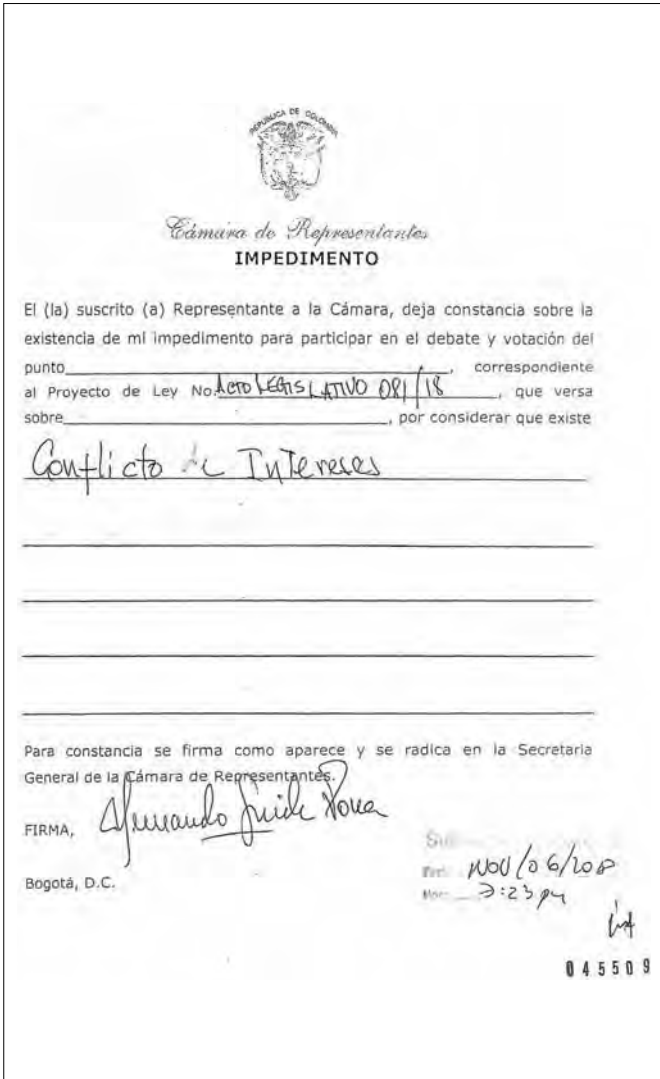 REPÚBLICA DE COLOMBIA
Cámara de Representantes
IMPEDIMENTO
El (la) suscrito (a) Representante a la Cámara, deja constancia sobre la
existencia de mi impedimento para participar en el debate y votación del
punto____, correspondiente
al Proyecto de Ley No. ACTO LEGISLATIVO 081/18, que versa
sobre____, por considerar que existe
Conflicto de Intereses
Para constancia se firma como aparece y se radica en la Secretaria
General de la Cámara de Representantes.
FIRMA,
Bogotá, D.C.
NOV/06/2018
:23 pm
045509